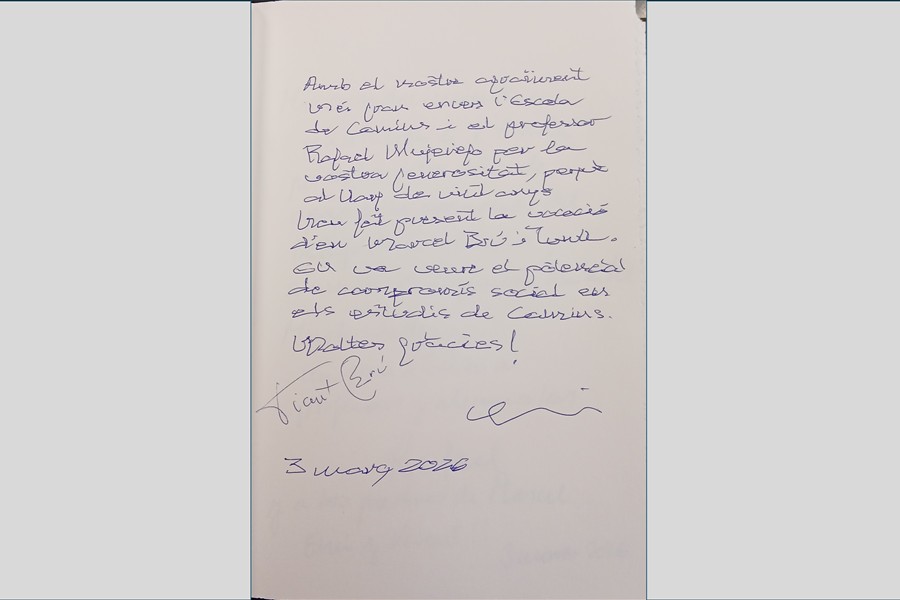 Amb el nostre agraïment
més gran envers l'Escola
de Camins i el professor
Rafael Mujeriego per la
vostra generositat, perquè
al llarg de vint anys
heu fet present la vocació
d'en Marcel Brú i Tonti.
Ell va veure el potencial
de compromís social en
els estudis de Camins.
Moltes gràcies!
Brú
3 març 2026